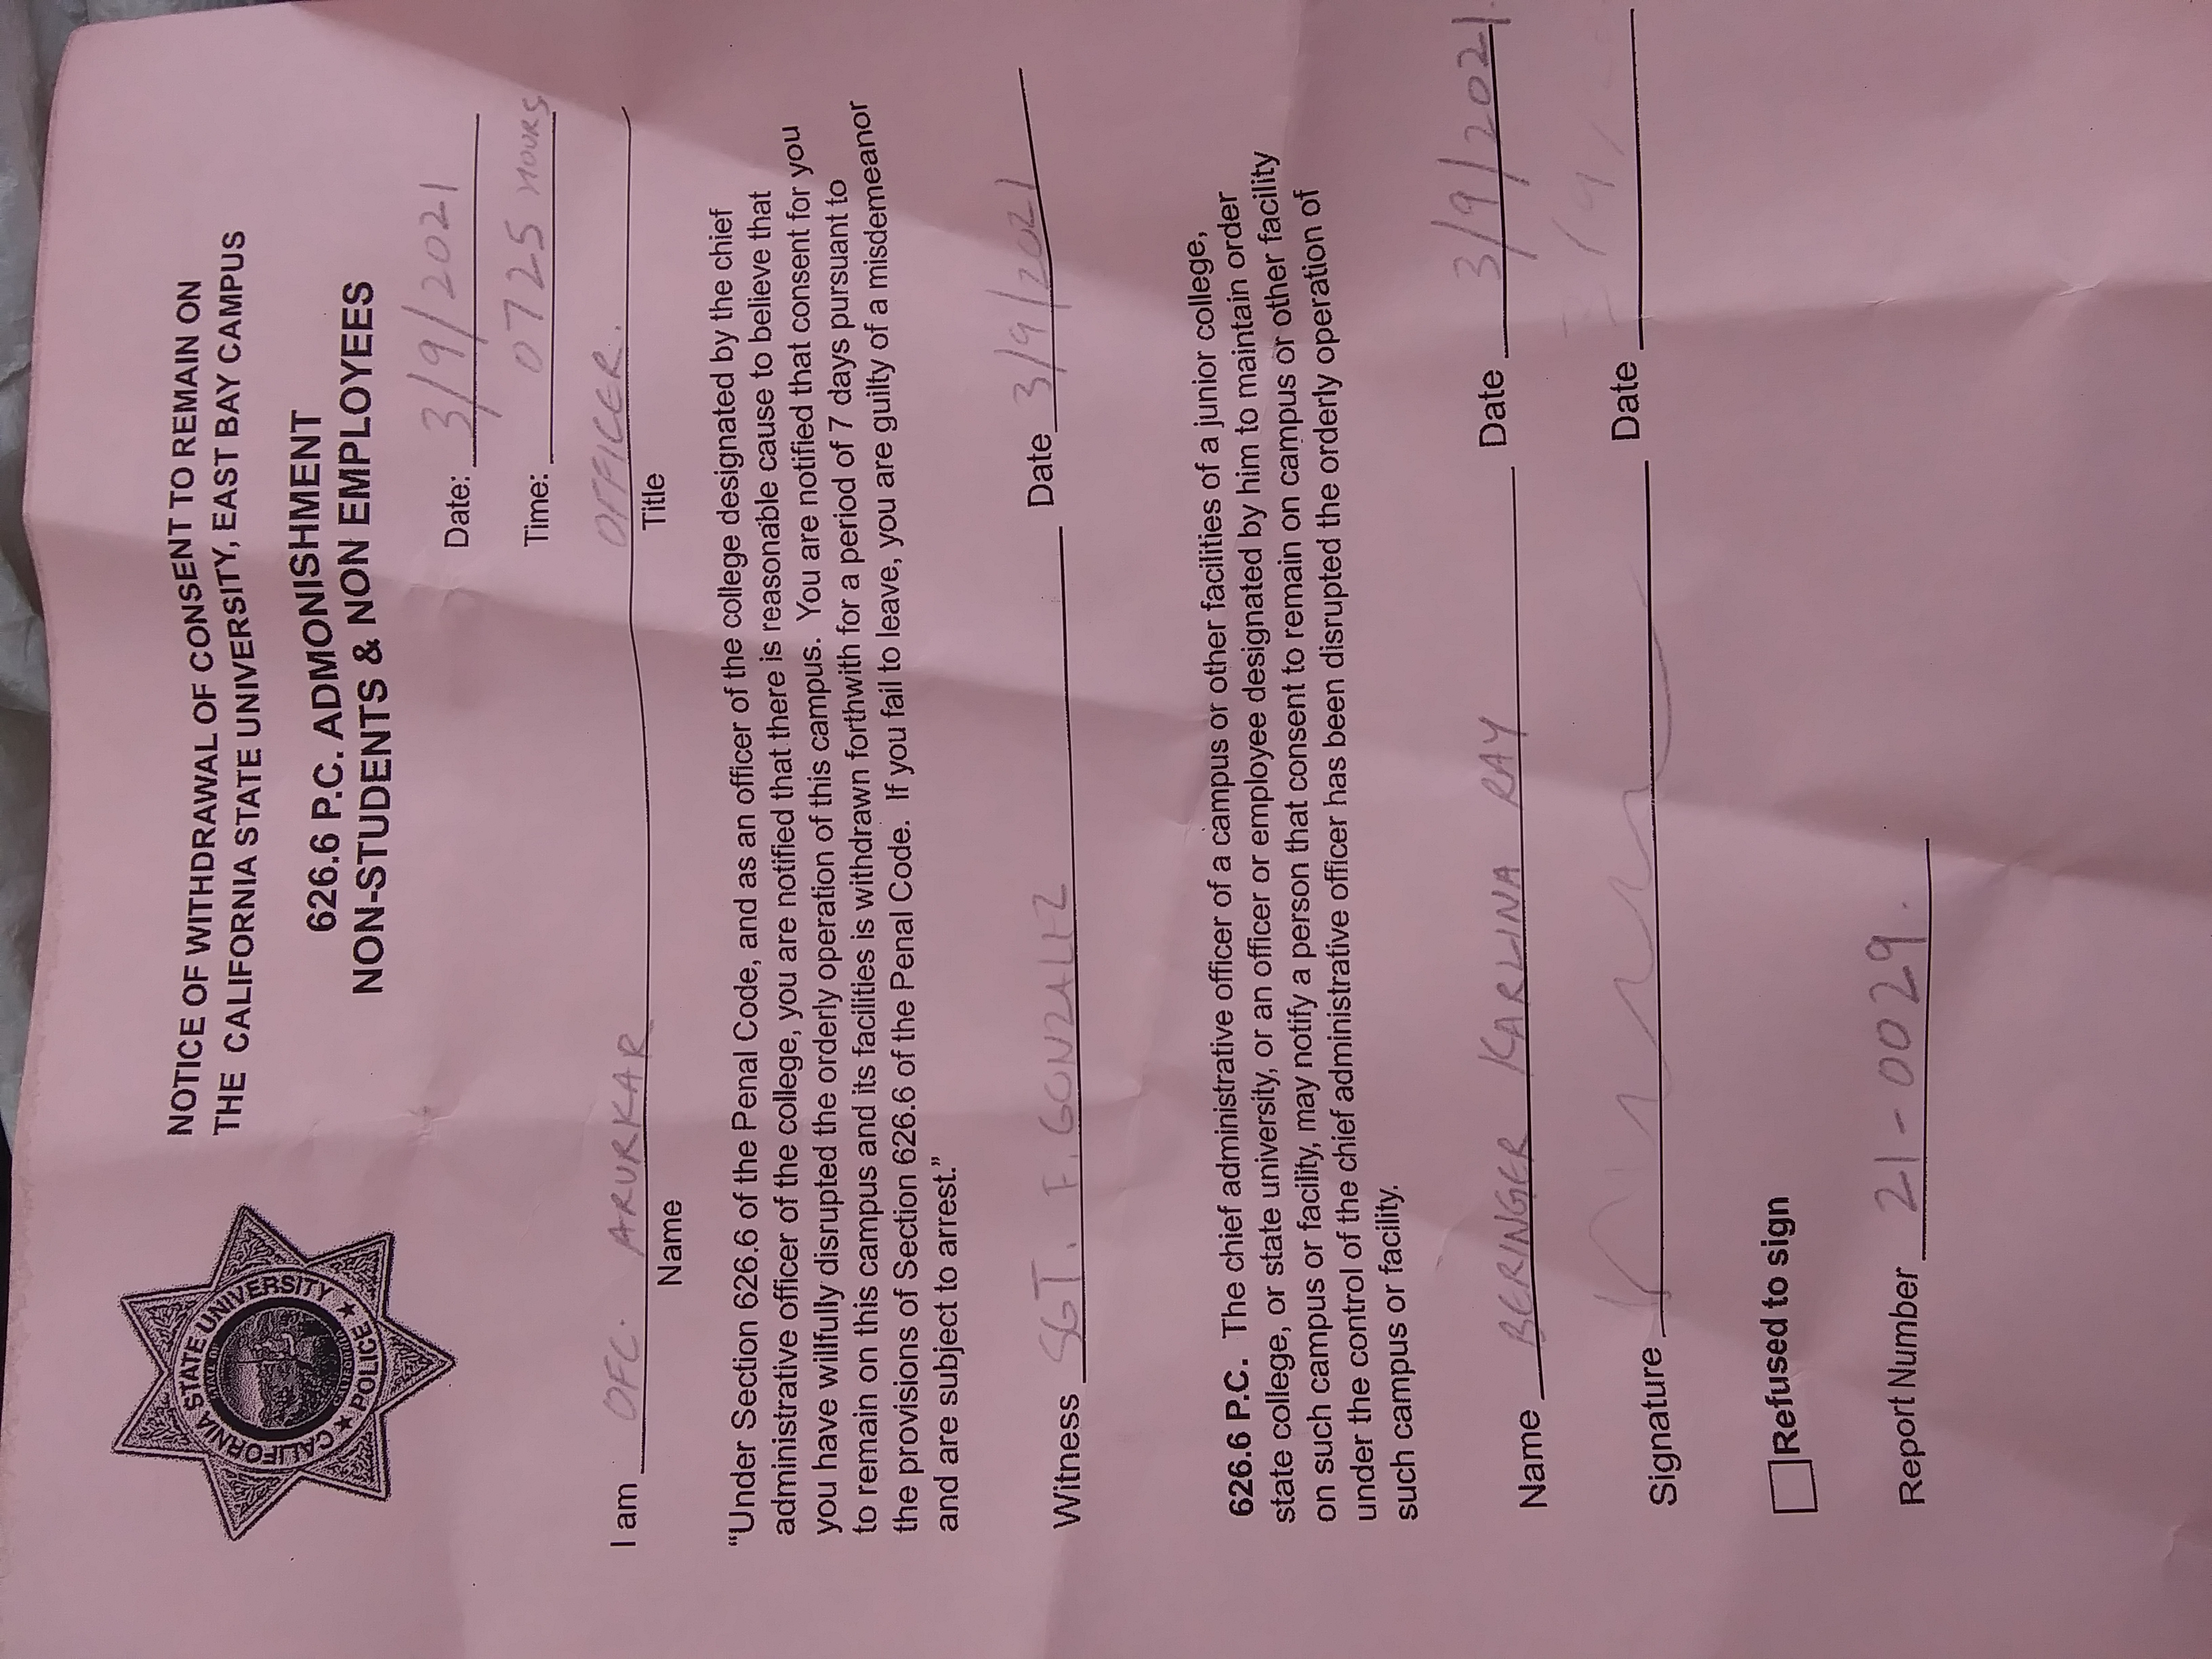 CALIFORNIA STATE UNIVERSITY
POLICE
NOTICE OF WITHDRAWAL OF CONSENT TO REMAIN ON
THE CALIFORNIA STATE UNIVERSITY, EAST BAY CAMPUS
626.6 P.C. ADMONISHMENT
NON-STUDENTS & NON EMPLOYEES
Date: 3/9/2021
Time: 0725 HOURS
I am OFC. ARURKAR OFFICER.
Name Title
“Under Section 626.6 of the Penal Code, and as an officer of the college designated by the chief
administrative officer of the college, you are notified that there is reasonable cause to believe that
you have willfully disrupted the orderly operation of this campus. You are notified that consent for you
to remain on this campus and its facilities is withdrawn forthwith for a period of 7 days pursuant to
the provisions of Section 626.6 of the Penal Code. If you fail to leave, you are guilty of a misdemeanor
and are subject to arrest.”
Witness SGT. F. GONZALEZ Date 3/9/2021
626.6 P.C. The chief administrative officer of a campus or other facilities of a junior college,
state college, or state university, or an officer or employee designated by him to maintain order
on such campus or facility, may notify a person that consent to remain on campus or other facility
under the control of the chief administrative officer has been disrupted the orderly operation of
such campus or facility.
Name BERINGER KARLINA RAY Date 3/9/2021
Signature Date
Refused to sign
Report Number 21-0029.